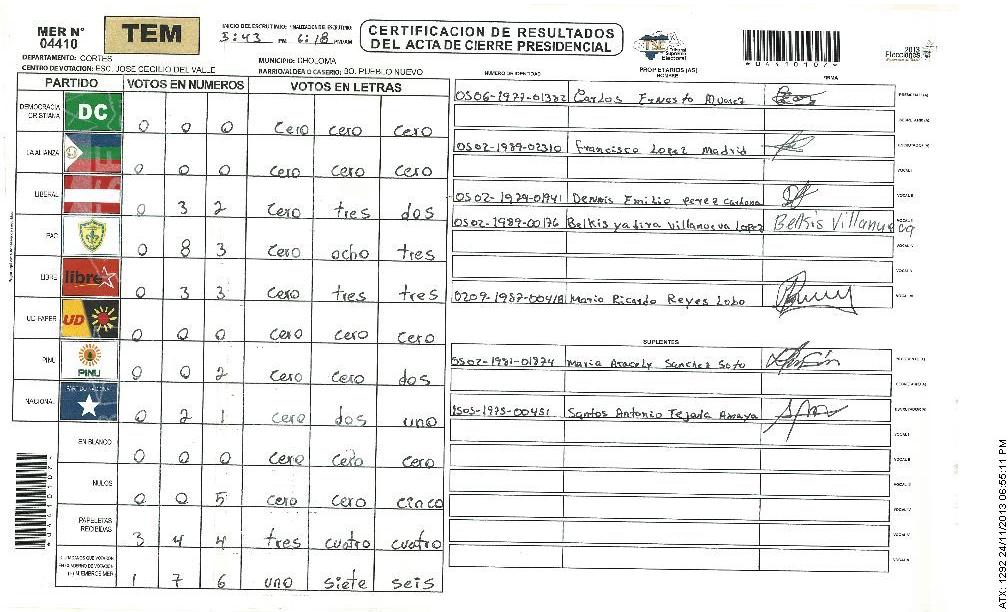 MER N° 04410
TEM
INICIO DEL ESCRUTINIO: FINALIZACION DEL ESCRUTINIO:
3:43 PM 6:18 PM/AM
CERTIFICACION DE RESULTADOS
DEL ACTA DE CIERRE PRESIDENCIAL
TSE Tribunal Supremo Electoral
2013 Elecciones
DEPARTAMENTO: CORTES
MUNICIPIO: CHOLOMA
CENTRO DE VOTACION: ESC. JOSE CECILIO DEL VALLE
BARRIO/ALDEA O CASERIO: BO. PUEBLO NUEVO
PARTIDO VOTOS EN NUMEROS VOTOS EN LETRAS
DEMOCRACIA CRISTIANA DC 0 0 0 Cero cero Cero
LA ALIANZA 0 0 0 Cero Cero Cero
LIBERAL 0 3 2 Cero tres dos
PAC 0 8 3 Cero ocho tres
LIBRE libre 0 3 3 Cero tres tres
UD FAPER UD 0 0 0 Cero Cero Cero
PINU PINU 0 0 2 Cero Cero dos
NACIONAL 0 2 1 Cero dos uno
EN BLANCO 0 0 0 Cero Cero Cero
NULOS 0 0 5 Cero Cero cinco
PAPELETAS RECIBIDAS 3 4 4 tres cuatro cuatro
CIUDADANOS QUE VOTARON EN CUADERNO DE VOTACION (+) MIEMBROS MER 1 7 6 uno siete seis
NUMERO DE IDENTIDAD PROPIETARIOS (AS) NOMBRE FIRMA
0506-1977-01382 Carlos Ernesto Alvarez PRESIDENTE(A)
SECRETARIO(A)
0502-1989-02310 Francisco Lopez Madrid ESCRUTADOR(A)
VOCAL I
0502-1979-01941 Dennis Emilio Perez Cardona VOCAL II
0502-1989-00176 Belkis yadira Villanueva Lopez Belkis Villanueva
VOCAL IV
VOCAL V
0209-1987-00418 Mario Ricardo Reyes Lobo
SUPLENTES
0502-1981-01874 Maria Aracely Sanchez Soto
SECRETARIO(A)
1505-1975-00451 Santos Antonio Tejada Amaya ESCRUTADOR(A)
VOCAL I
VOCAL II
VOCAL III
VOCAL IV
VOCAL V
ATX: 1292 24/11/2013 06:55:11 PM